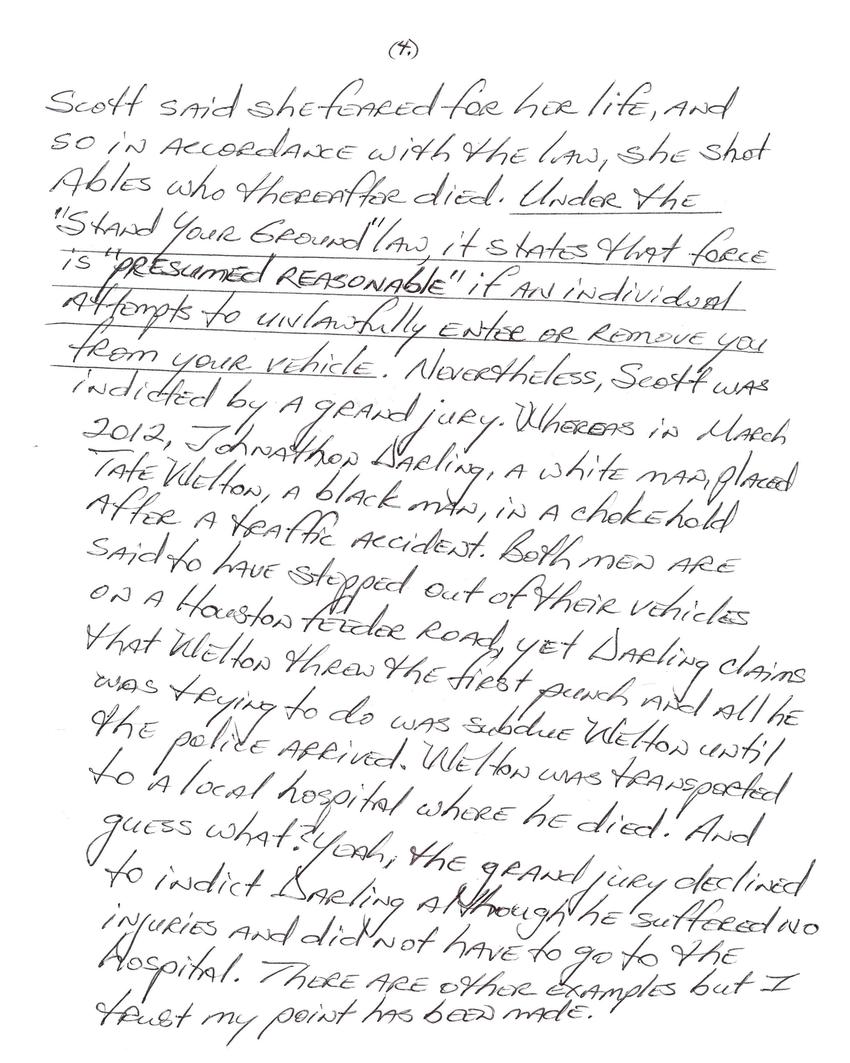 (4.)
Scott said she feared for her life, and
so in accordance with the law, she shot
Ables who thereafter died. Under the
"Stand Your Ground" law, it states that force
is "presumed reasonable" if an individual
attempts to unlawfully enter or remove you
from your vehicle. Nevertheless, Scott was
indicted by a grand jury. Whereas in March
2012, Johnathon Darling, a white man, placed
Tate Welton, a black man, in a chokehold
after a traffic accident. Both men are
said to have stepped out of their vehicles
on a Houston feeder road, yet Darling claims
that Welton threw the first punch and all he
was trying to do was subdue Welton until
the police arrived. Welton was transported
to a local hospital where he died. And
guess what? Yeah, the grand jury declined
to indict Darling although he suffered no
injuries and did not have to go to the
hospital. There are other examples but I
trust my point has been made.